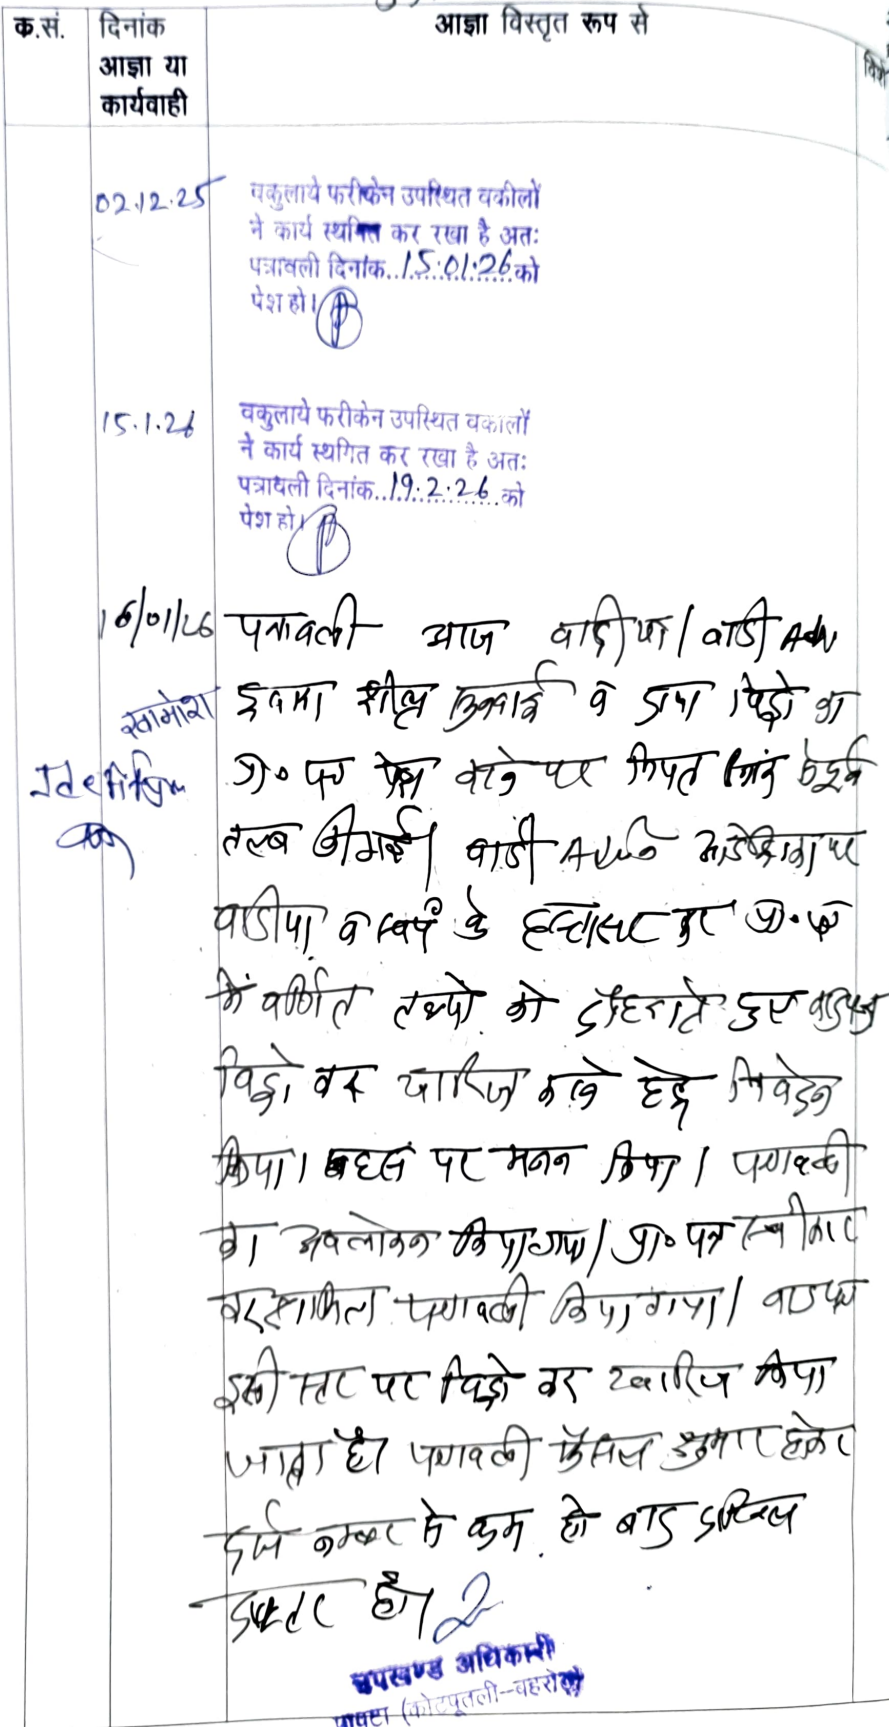 क.सं. दिनांक आज्ञा या कार्यवाही आज्ञा विस्तृत रूप से
02.12.25 वकुलाये फरीकेन उपस्थित वकीलों
ने कार्य स्थगित कर रखा है अतः
पत्रावली दिनांक..15.01.26.को
पेश हो।
15.1.26 वकुलाये फरीकेन उपस्थित वकीलों
ने कार्य स्थगित कर रखा है अतः
पत्रावली दिनांक..19.2.26.को
पेश हो।
16/01/26 पत्रावली आज वादीया/वादी Adv
द्वारा शीघ्र सुनवाई व दावा विड्रो का
प्रा० पत्र पेश करने पर नियत
तलब की गई। वादी पर
वादीया व स्वयं के हस्ताक्षर कर प्रा० पत्र
में वर्णित तथ्यो को दोहराते हुए वादपत्र
विड्रो कर खारिज करने हेतु निवेदन
किया। बहस पर मनन किया। पत्रावली
का अवलोकन किया गया। प्रा० पत्र स्वीकार
कर शामिल पत्रावली किया गया। वादपत्र
इसी स्तर पर विड्रो कर खारिज किया
जाता है। पत्रावली फैसल शुमार होकर
दर्ज नम्बर से कम हो बाद दाखिल
दफ्तर हो।
उपखण्ड अधिकारी
पावटा (कोटपूतली-बहरोड़)